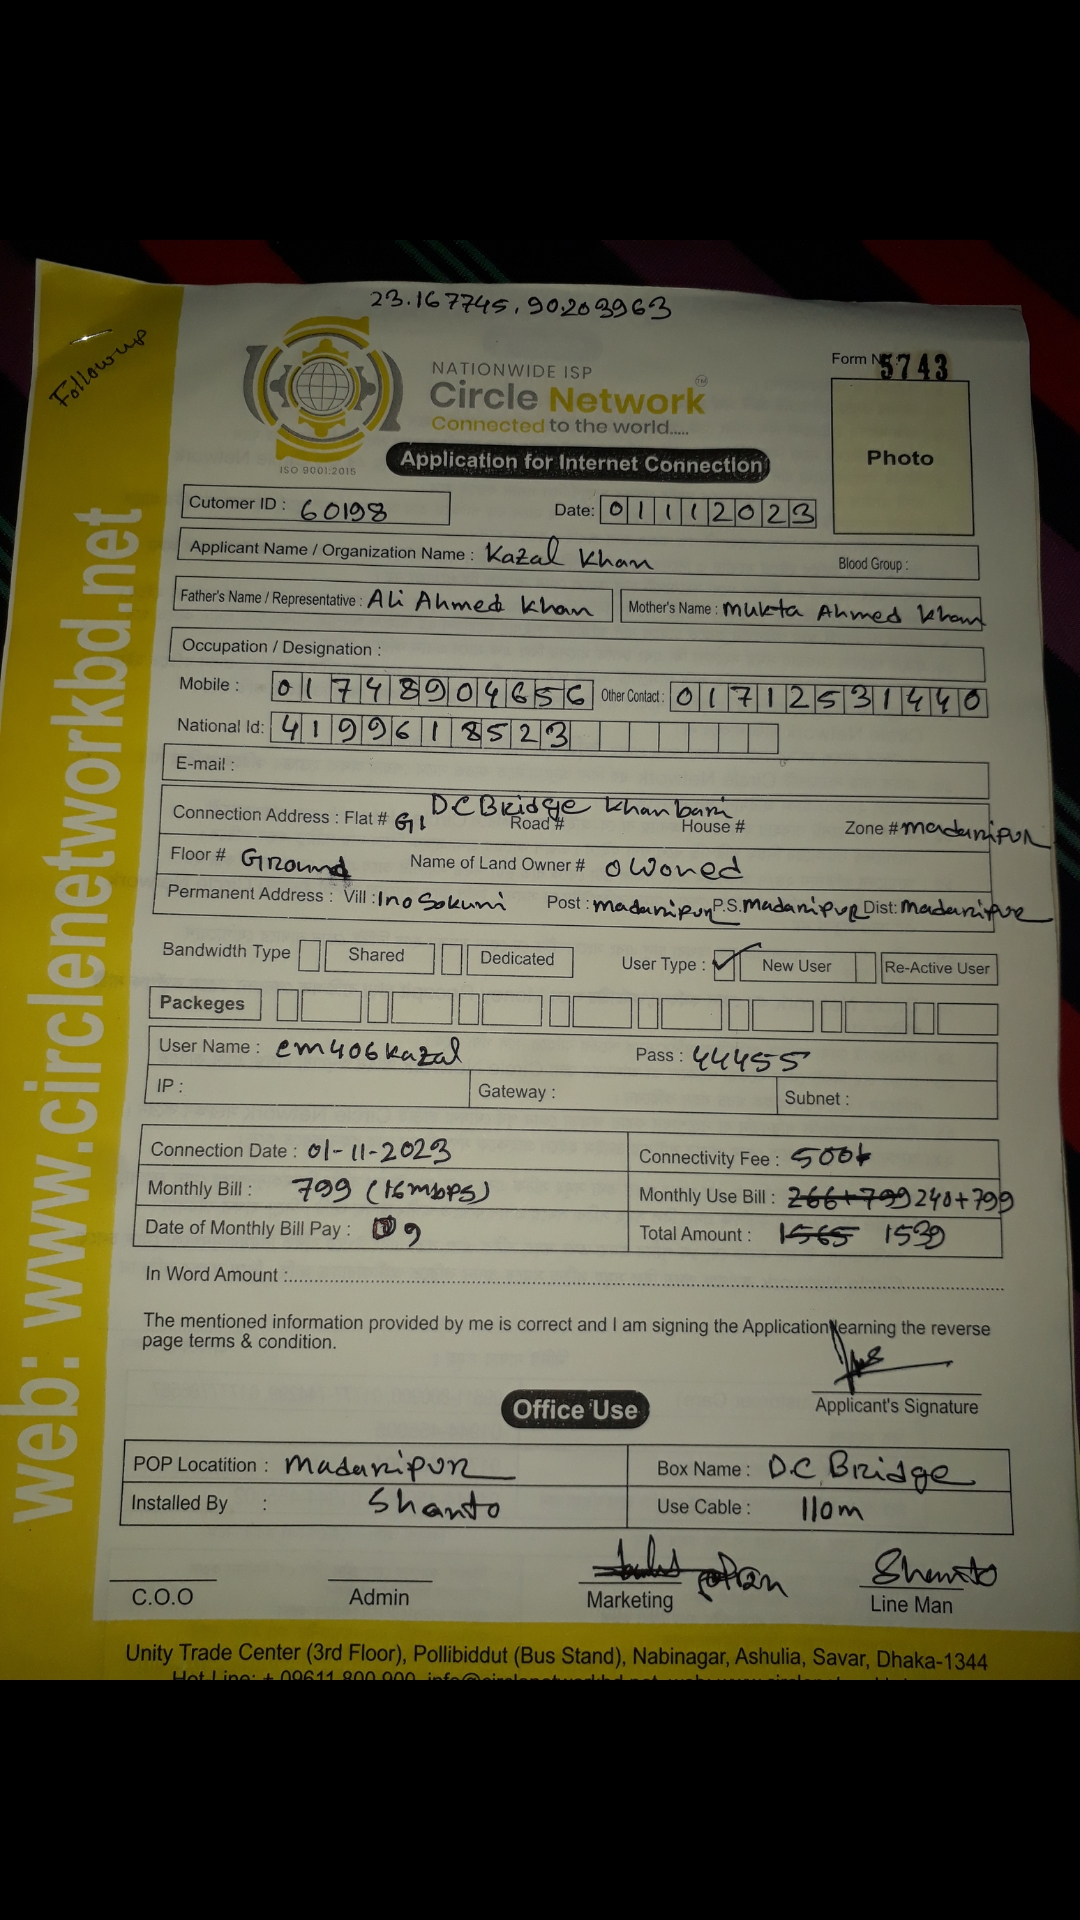 23.167745, 90.203963
Followup
NATIONWIDE ISP
Circle Network
TM
Connected to the world.....
ISO 9001:2015
Form N 5743
Photo
Application for Internet Connection
Cutomer ID : 60198 Date: 01112023
Applicant Name / Organization Name : Kazal Khan Blood Group :
Father's Name / Representative : Ali Ahmed Khan Mother's Name : Mukta Ahmed Khan
Occupation / Designation :
Mobile : 01748904656 Other Contact : 01712531440
National Id: 4199618523
E-mail :
DC Bridge Khan bari
Connection Address : Flat # G1 Road # House # Zone # madaripur
Floor # Ground Name of Land Owner # owoned
Permanent Address : Vill : Post : madaripur P.S. Madaripur Dist: Madaripur
Bandwidth Type Shared Dedicated User Type : ✓ New User Re-Active User
Packeges
User Name : em406kazal Pass : 44455
IP : Gateway : Subnet :
Connection Date : 01-11-2023 Connectivity Fee : 500
Monthly Bill : 799 (16mbps) Monthly Use Bill : 266+799 240+799
Date of Monthly Bill Pay : 9 Total Amount : 1565 1539
In Word Amount :
The mentioned information provided by me is correct and I am signing the Application learning the reverse
page terms & condition.
Applicant's Signature
Office Use
POP Locatition : Madaripur Box Name : D.C. Bridge
Installed By : Shanto Use Cable : 110m
Shanto
C.O.O Admin Marketing Line Man
Unity Trade Center (3rd Floor), Pollibiddut (Bus Stand), Nabinagar, Ashulia, Savar, Dhaka-1344
web: www.circlenetworkbd.net